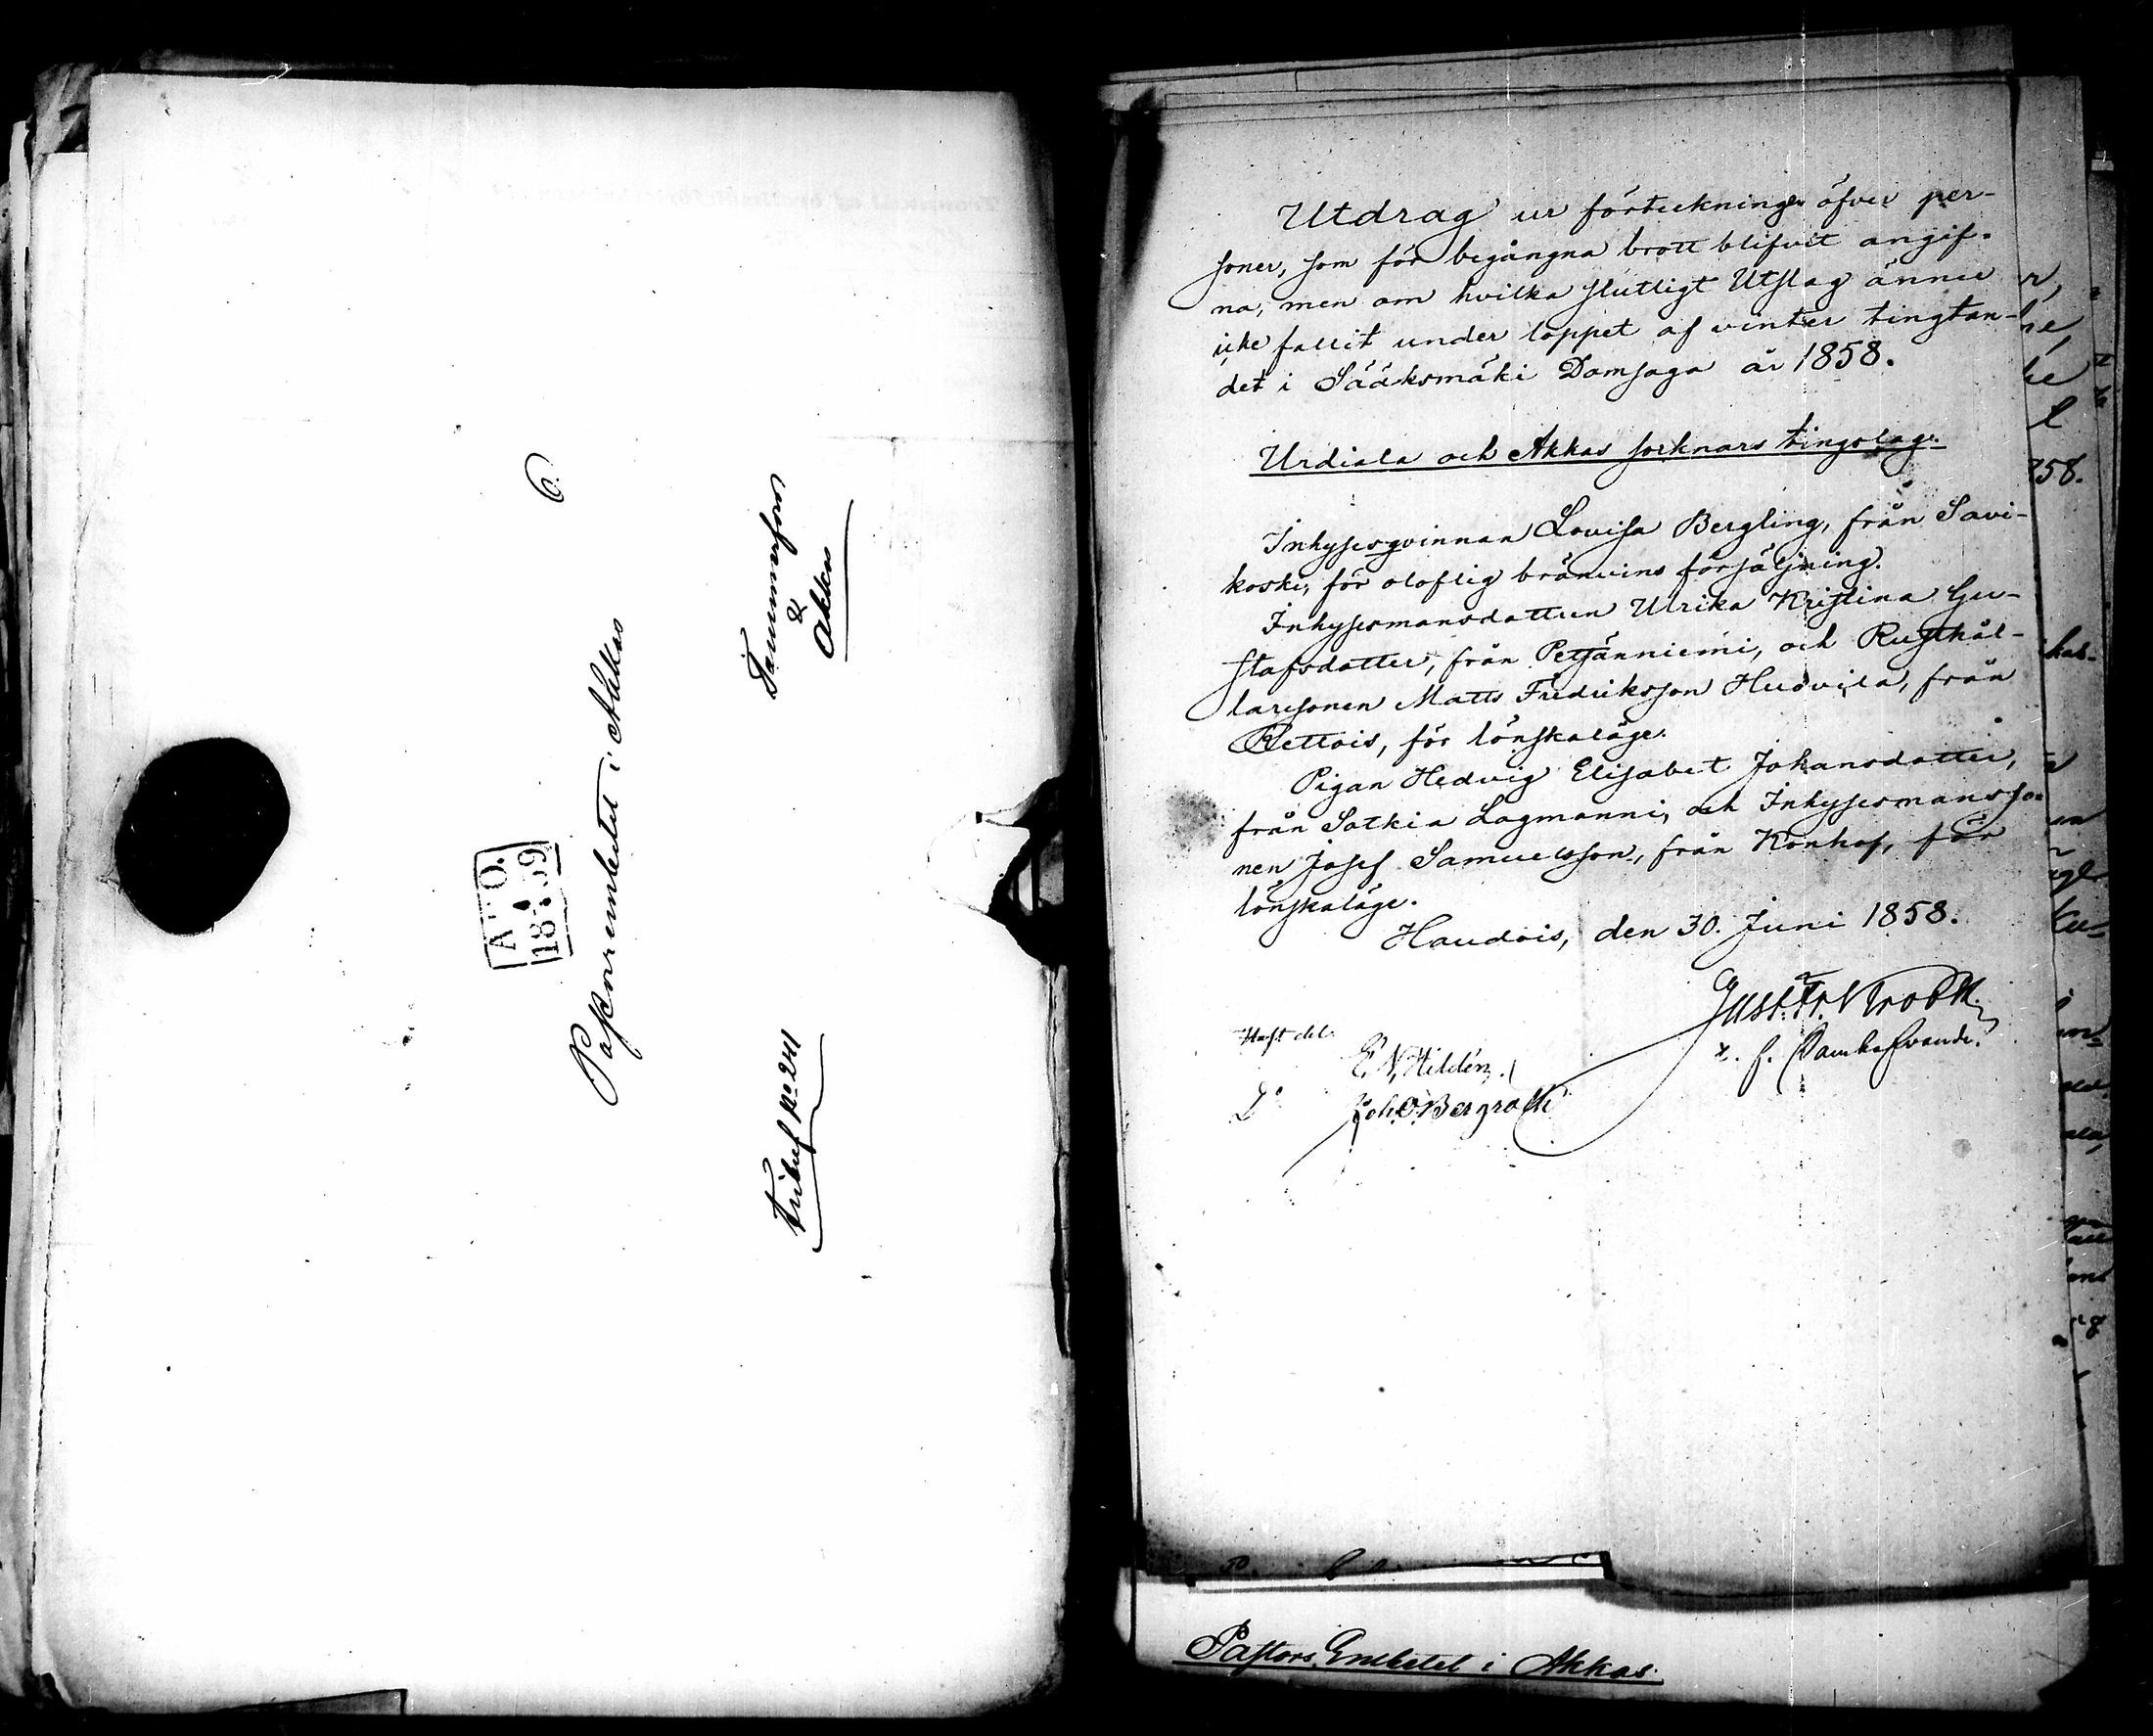 6.
ABO.
18 59
Pastorsembetet i Akkas
Tammerfors
&
Akkas
Fribref No 241
Utdrag ur förteckningen öfver per-
soner, som för begångna brott blifvit angif-
na, men om hvilka slutligt Utslag ännu
icke fallit under loppet af vinter tingtan-
det i Sääksmäki Domsaga år 1858.
Urdiala och Akkas socknars tingslag.
Inhysesqvinnan Lovisa Bergling, från Savi-
koski, för oloflig brännvins försäljning.
Inhysesmansdottren Ulrika Kristina Gu-
stafsdotter, från Petsänniemi, och Rusthål-
laresonen Matts Fredriksson Huovila, från
Rettois, för lönskaläge.
Pigan Hedvig Elisabet Johansdotter,
från Sotkia Lagmanni, och Inhysesmansso-
nen Josef Samuelsson, från Konhof, för
lönskaläge.
Haudois, den 30. Juni 1858.
Gust. Fr.
t. f. Domhafvande.
E. N. Hildén.
Do Joh. O. Bergroth
858.
Pastors Embetet i Akkas.